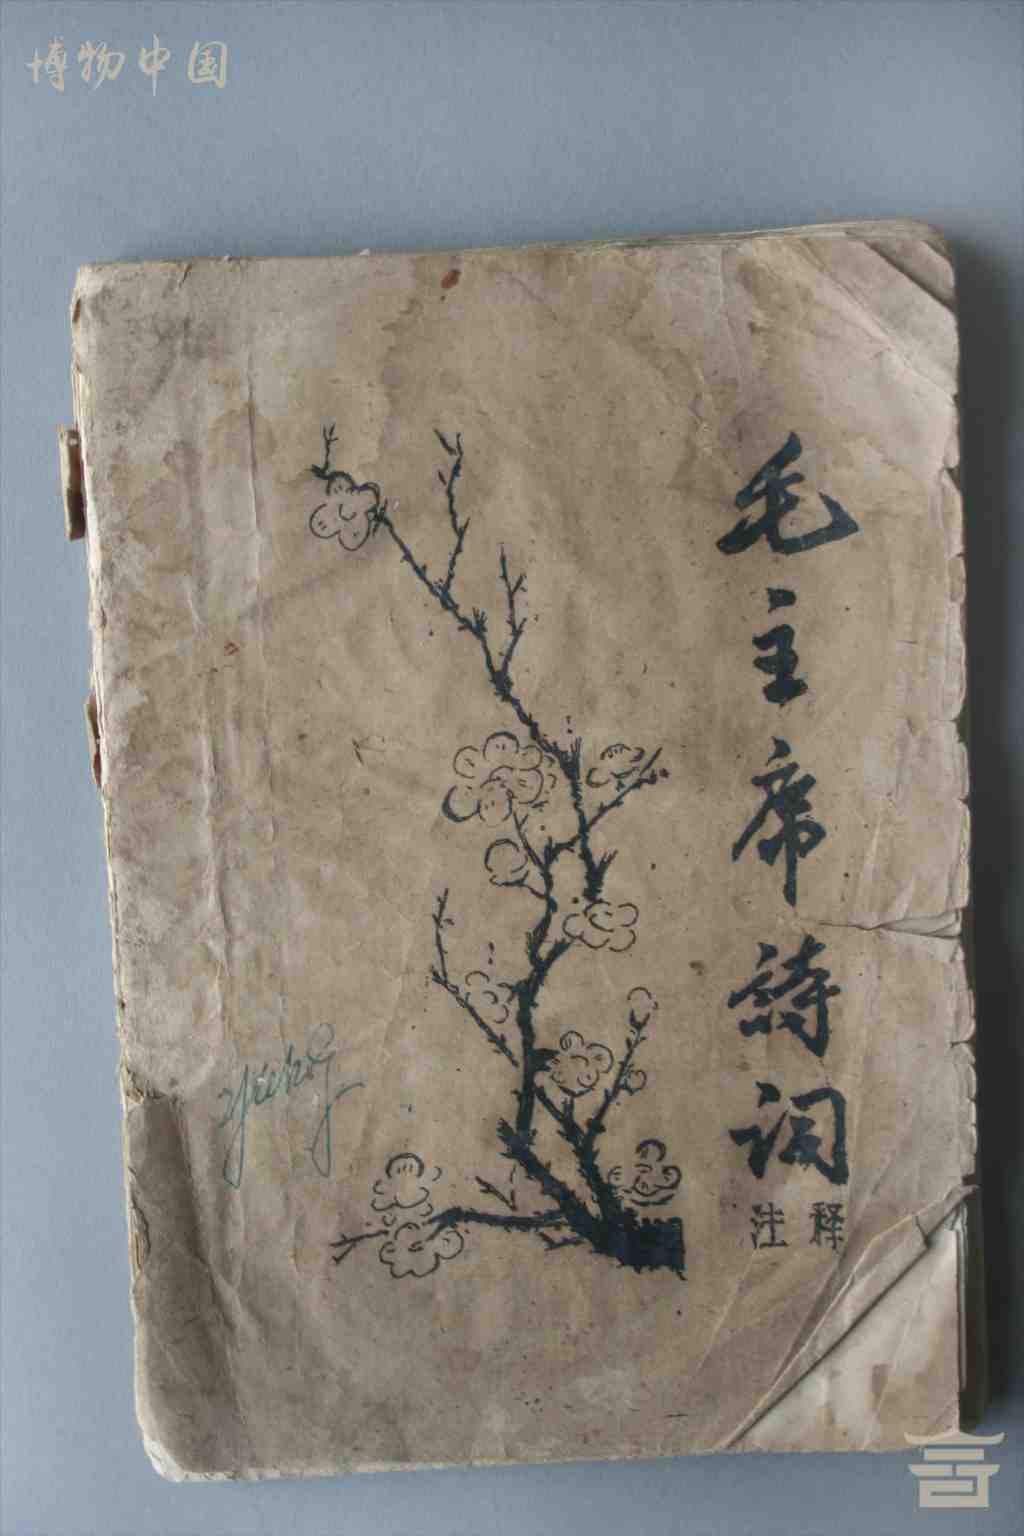 博物中国
毛主席诗词
注释